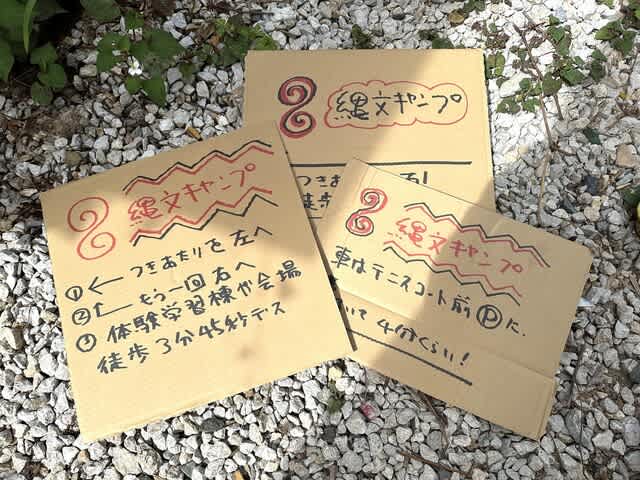 縄文キャンプ
つきあたり
徒歩
縄文キャンプ
①← つきあたりを左へ
②↑ もう一回右へ
③ 体験学習棟が会場
徒歩3分45秒デス
縄文キャンプ
車はテニスコート前Ⓟに.
いて4分くらい!